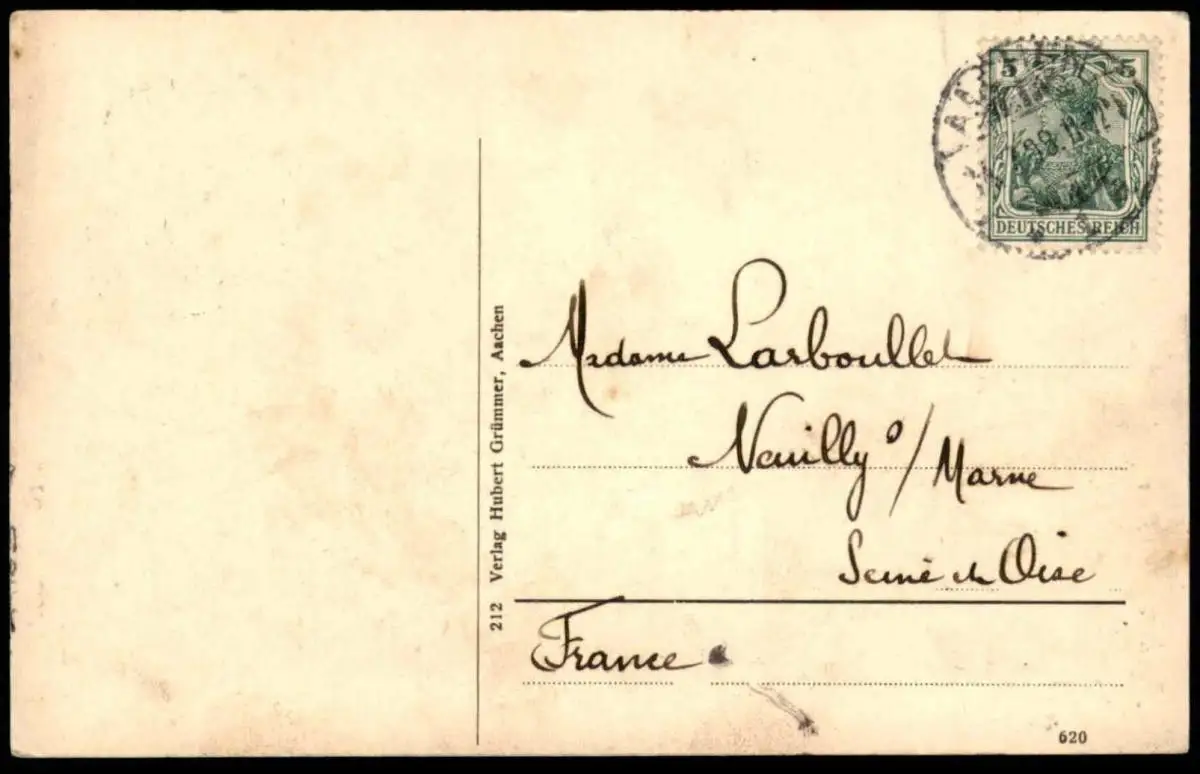 5 5
AACHEN
DEUTSCHES REICH
Madame Larboullet
Neuilly s/ Marne
Seine et Oise
France
212 Verlag Hubert Grümmer, Aachen
620